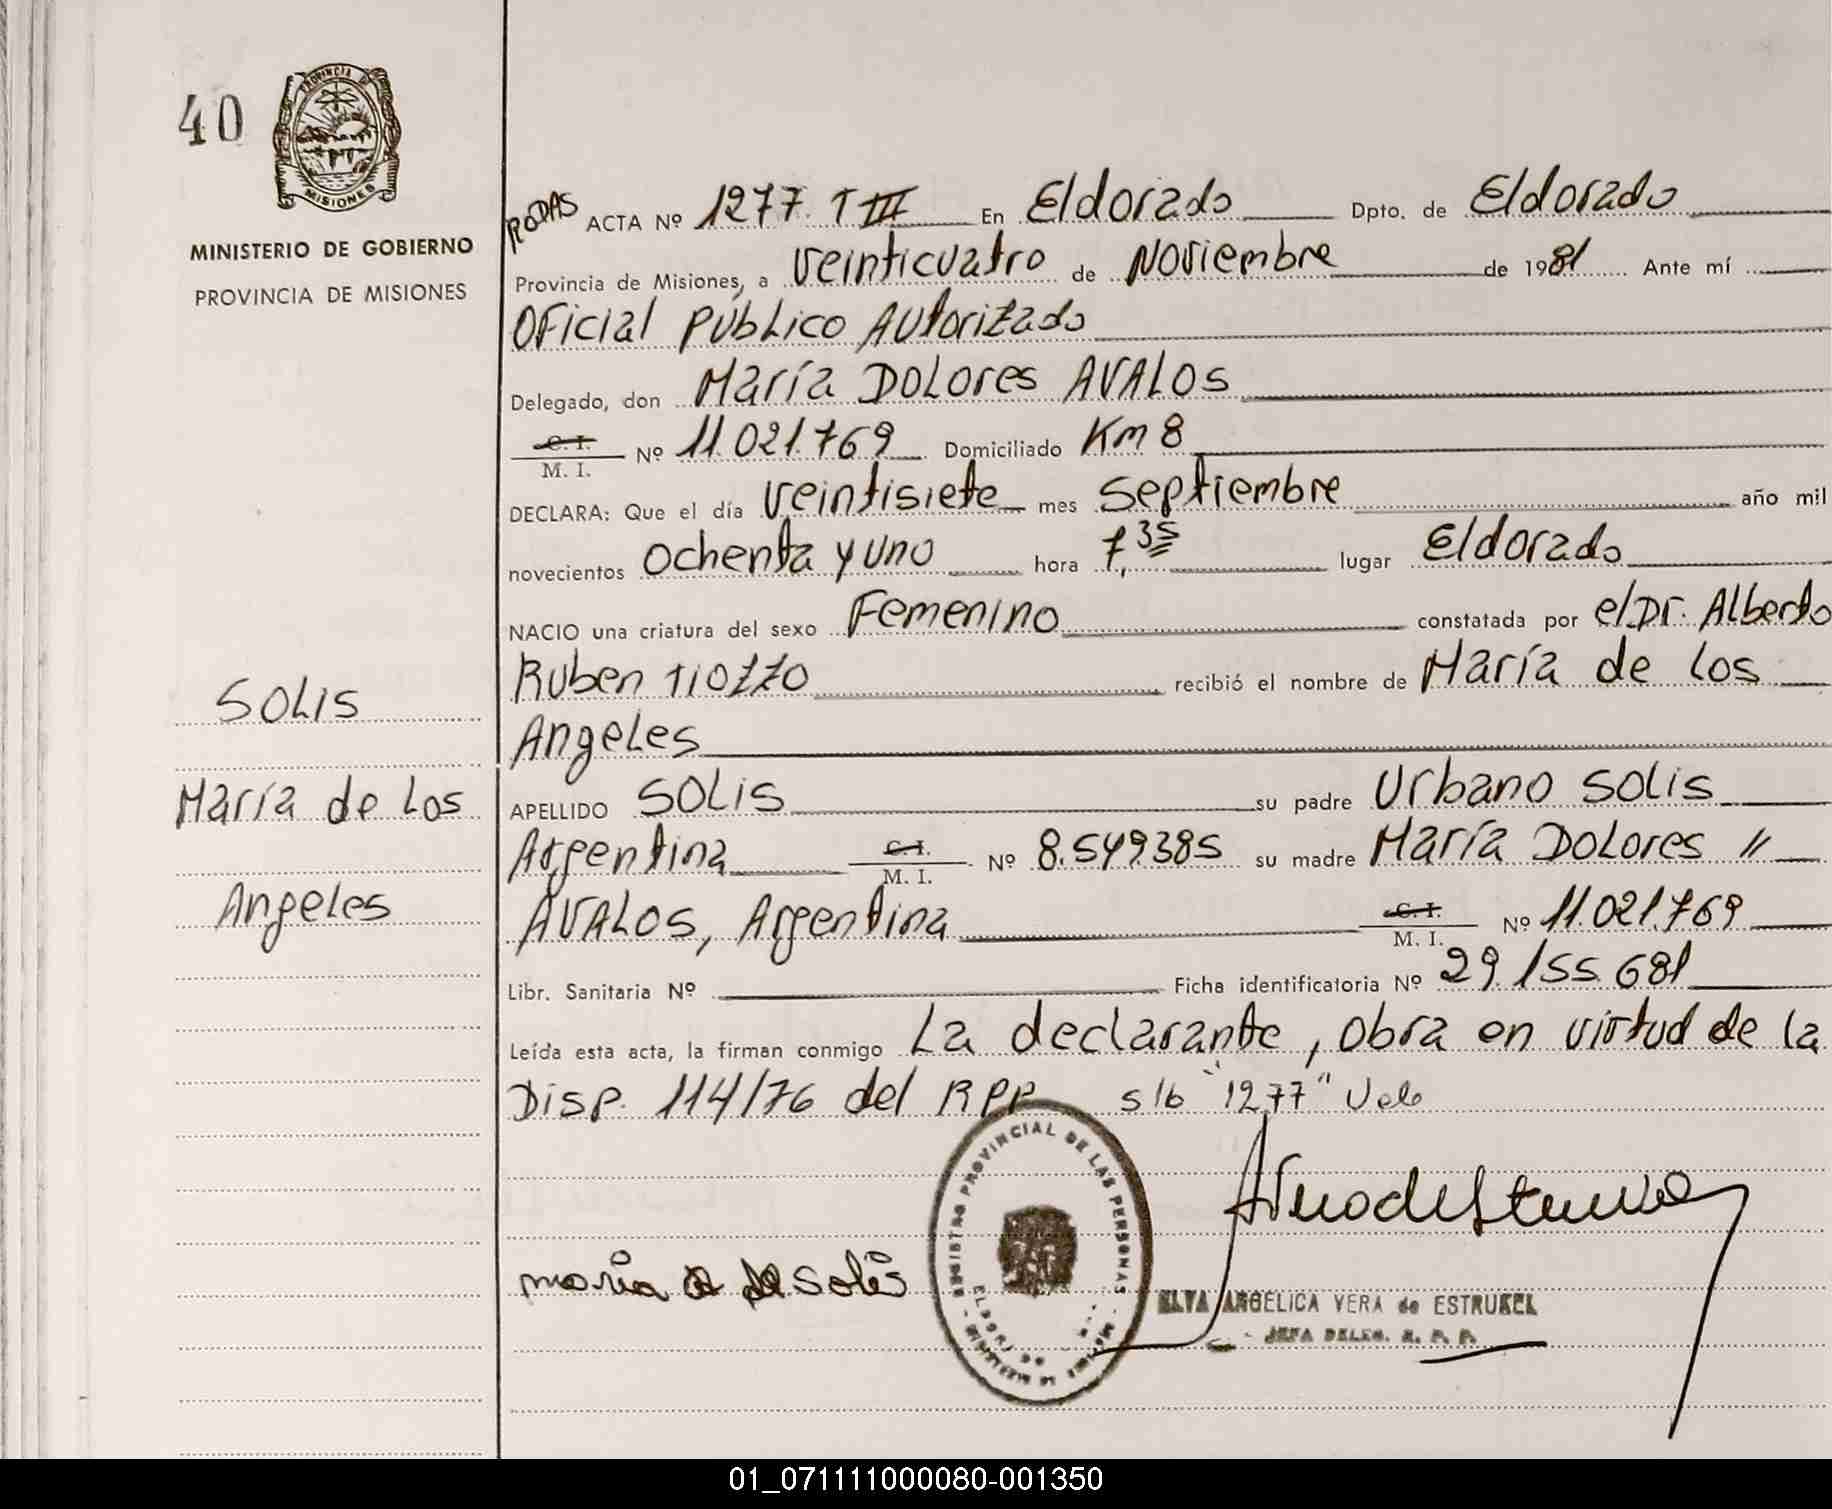 40
PROVINCIA DE
MISIONES
MINISTERIO DE GOBIERNO
PROVINCIA DE MISIONES
RODAS ACTA Nº 1277. T III En Eldorado Dpto. de Eldorado
Provincia de Misiones, a veinticuatro de Noviembre de 1981 Ante mí
Oficial Público Autorizado
Delegado, don María DOLORES AVALOS
C. I. / M. I. Nº 11.021.769 Domiciliado Km 8
DECLARA: Que el día veintisiete mes septiembre año mil
novecientos ochenta y uno hora 7,35 lugar Eldorado
NACIO una criatura del sexo Femenino constatada por el Dr. Alberto
Ruben TIOZZO recibió el nombre de María de los
Angeles
APELLIDO SOLIS su padre Urbano SOLIS
Argentina C. I. / M. I. Nº 8.549.385 su madre María DOLORES "
AVALOS, Argentina C. I. / M. I. Nº 11.021.769
Libr. Sanitaria Nº Ficha identificatoria Nº 29.155.681
Leída esta acta, la firman conmigo La declarante, obra en virtud de la
Disp. 114/76 del RPP s/b "1277" Vale
SOLIS
María de Los
Angeles
REGISTRO PROVINCIAL DE LAS PERSONAS
maria de Solis
ELVA ANGELICA VERA de ESTRUKEL
JEFA DELEG. R. P. P.
01_071111000080-001350